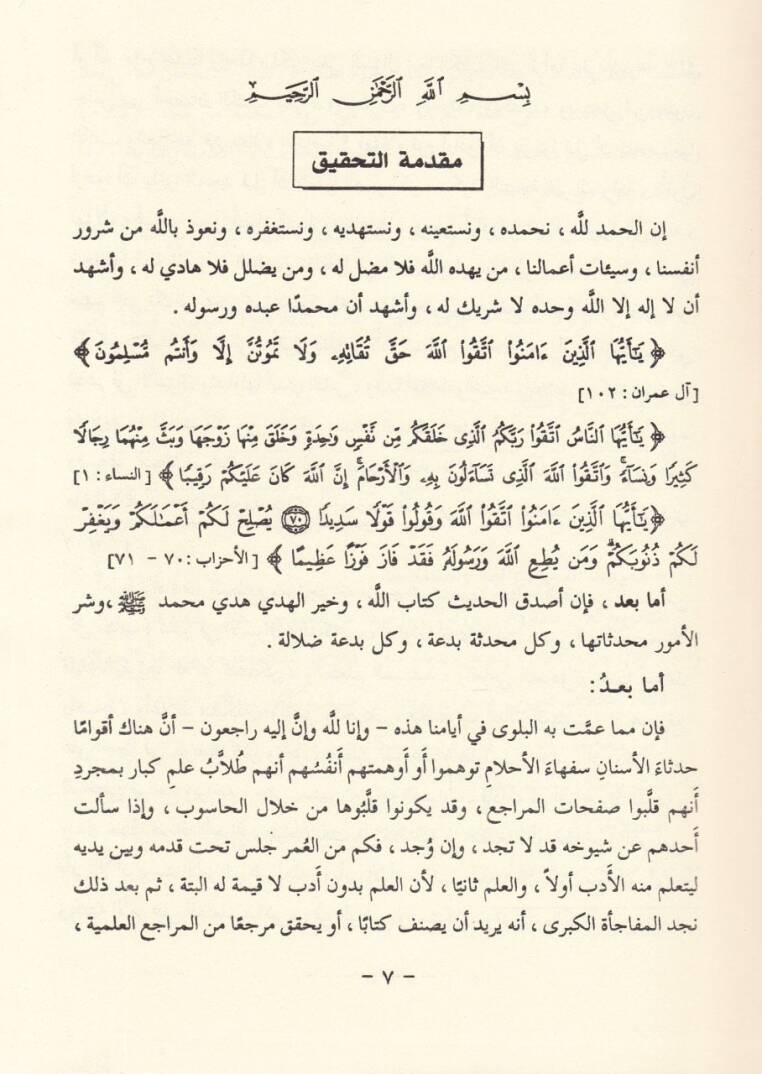 بِسْمِ ٱللَّهِ ٱلرَّحْمَٰنِ ٱلرَّحِيمِ
مقدمة التحقيق
إن الحمد للَّه ، نحمده ، ونستعينه ، ونستهديه ، ونستغفره ، ونعوذ باللَّه من شرور
أنفسنا ، وسيئات أعمالنا ، من يهده اللَّه فلا مضل له ، ومن يضلل فلا هادي له ، وأشهد
أن لا إله إلا اللَّه وحده لا شريك له ، وأشهد أن محمدًا عبده ورسوله .
﴿ يَٰٓأَيُّهَا ٱلَّذِينَ ءَامَنُوا۟ ٱتَّقُوا۟ ٱللَّهَ حَقَّ تُقَاتِهِۦ وَلَا تَمُوتُنَّ إِلَّا وَأَنتُم مُّسْلِمُونَ ﴾
[آل عمران : ١٠٢]
﴿ يَٰٓأَيُّهَا ٱلنَّاسُ ٱتَّقُوا۟ رَبَّكُمُ ٱلَّذِى خَلَقَكُم مِّن نَّفْسٍ وَٰحِدَةٍ وَخَلَقَ مِنْهَا زَوْجَهَا وَبَثَّ مِنْهُمَا رِجَالًا
كَثِيرًا وَنِسَآءً ۚ وَٱتَّقُوا۟ ٱللَّهَ ٱلَّذِى تَسَآءَلُونَ بِهِۦ وَٱلْأَرْحَامَ ۚ إِنَّ ٱللَّهَ كَانَ عَلَيْكُمْ رَقِيبًا ﴾ [النساء : ١]
﴿ يَٰٓأَيُّهَا ٱلَّذِينَ ءَامَنُوا۟ ٱتَّقُوا۟ ٱللَّهَ وَقُولُوا۟ قَوْلًا سَدِيدًا ٧٠ يُصْلِحْ لَكُمْ أَعْمَٰلَكُمْ وَيَغْفِرْ
لَكُمْ ذُنُوبَكُمْ ۗ وَمَن يُطِعِ ٱللَّهَ وَرَسُولَهُۥ فَقَدْ فَازَ فَوْزًا عَظِيمًا ﴾ [الأحزاب : ٧٠ - ٧١]
أما بعد ، فإن أصدق الحديث كتاب اللَّه ، وخير الهدي هدي محمد ﷺ ،وشر
الأمور محدثاتها ، وكل محدثة بدعة ، وكل بدعة ضلالة .
أما بعدُ:
فإن مما عمَّت به البلوى في أيامنا هذه - وإنا للَّه وإنَّ إليه راجعون - أنَّ هناك أقوامًا
حدثاءَ الأسنانِ سفهاءَ الأحلامِ توهموا أَو أَوهمتهم أَنفُسُهم أنهم طُلاَّبُ علمٍ كبار بمجردِ
أَنهم قلَّبوا صفحات المراجع ، وقد يكونوا قلَّبُوها من خلال الحاسوب ، وإذا سألت
أَحدهم عن شيوخه قد لا تجد ، وإن وُجد ، فكم من العُمر جلس تحت قدمه وبين يديه
ليتعلم منه الأَدب أولاً ، والعلم ثانيًا ، لأن العلم بدون أدب لا قيمة له البتة ، ثم بعد ذلك
نجد المفاجأة الكبرى ، أنه يريد أن يصنف كتابًا ، أو يحقق مرجعًا من المراجع العلمية ،
- ٧ -